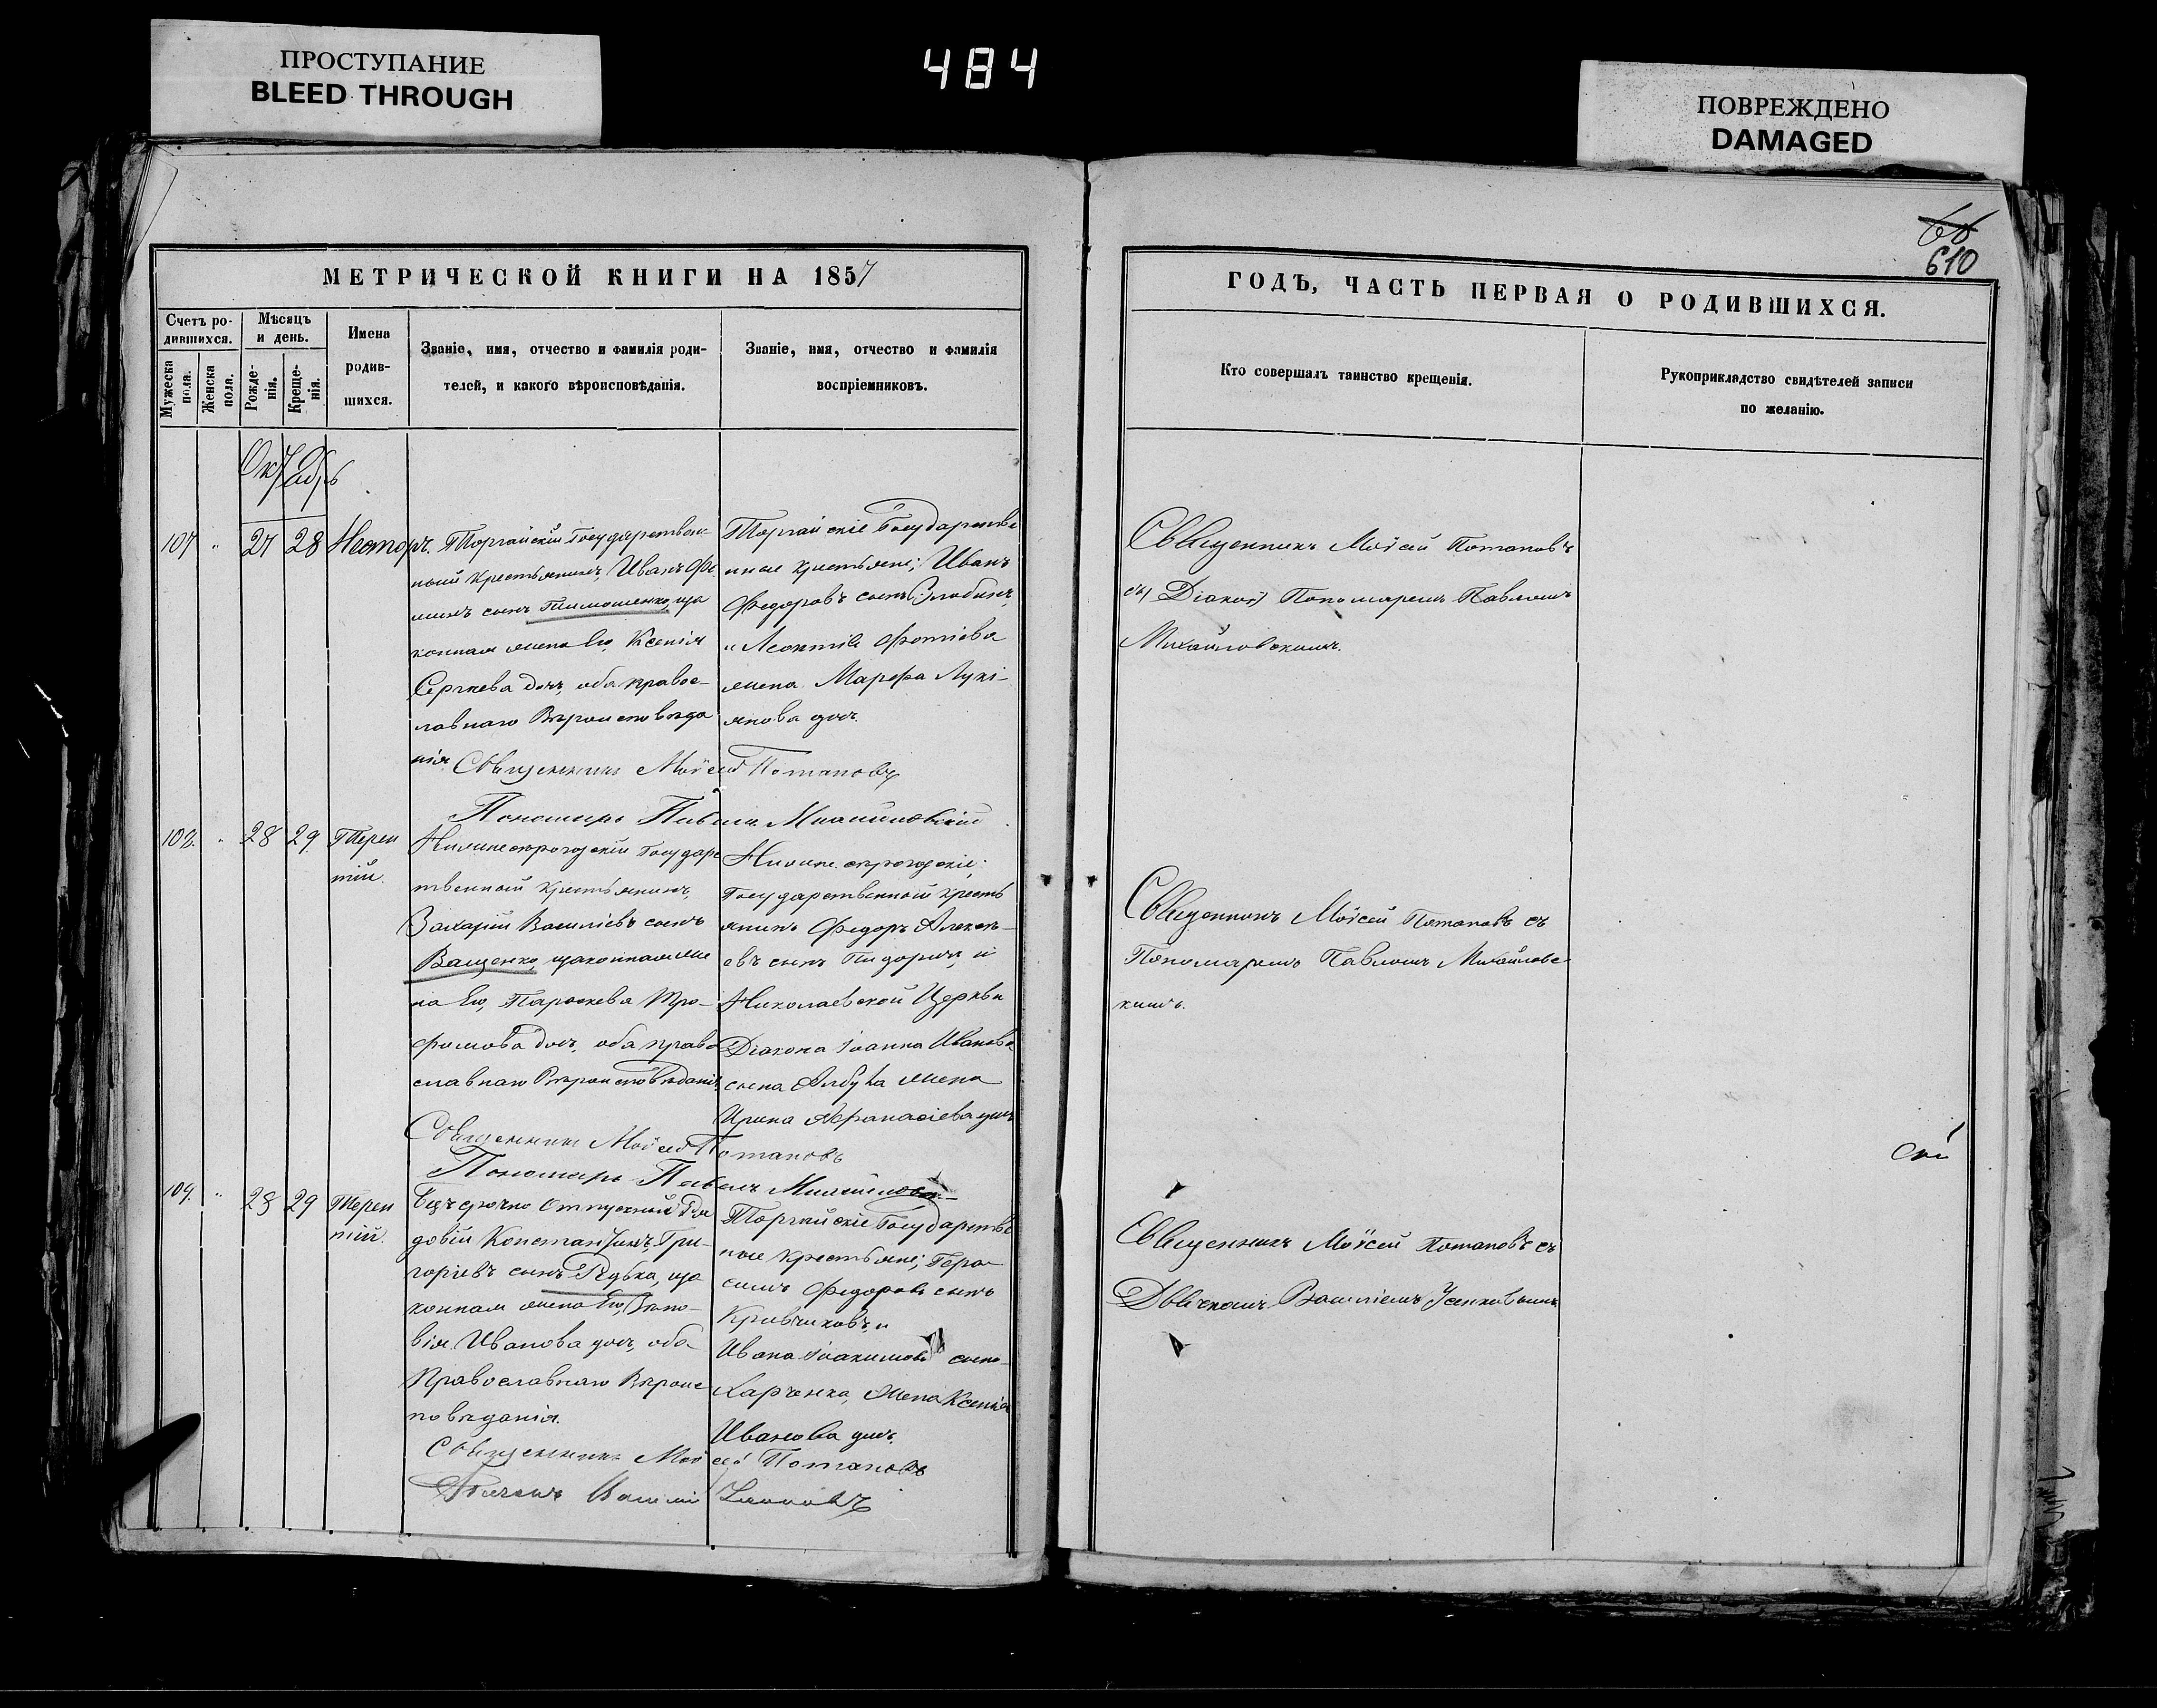 ПРОСТУПАНИЕ
BLEED THROUGH
484
ПОВРЕЖДЕНО
DAMAGED
610
МЕТРИЧЕСКОЙ КНИГИ НА 1857
Счетъ ро-
дившихся.
Мужеска
пола.
Женска
пола.
Мѣсяцъ
и день.
Рожде-
нія.
Креще-
нія.
Имена
родив-
шихся.
Званіе, имя, отчество и фамилія роди-
телей, и какого вѣроисповѣданія.
Званіе, имя, отчество и фамилія
воспріемниковъ.
Октябрь
107
27
28
Несторъ.
Торгайскій Государствен-
ный крестьянинъ, Иванъ Фо
минъ сынъ Тимошенко, за
конная жена Его, Ксенія
Сергиева дочь, оба правос-
лавнаго Вѣроисповѣда
нія
Торгайскіе Государстве
нные крестьяне; Иванъ
Федоровъ сынъ
и Леонтія Фотіева
жена Марфа Лукі-
янова дочь.
Священникъ Моісей Потаповъ
Пономарь Павелъ Михайловскій
108.
28
29
Терен
тій.
Нижнесѣрогозскій Государс
твенный крестьянинъ,
Захарій Васильевъ сынъ
Ващенко, законная же
на Его, Параскева Тро-
фимова дочь, оба право
славнаго Вѣроисповѣданія.
Нижне сѣрогозскіе;
Государственный кресть
янинъ Федоръ Алексѣ-
евъ сынъ и
Николаевской Церкви
Діакона Іоанна Иванова
сына жена
Ирина Афанасіева дочь
Священникъ Моісей Потаповъ
Пономарь Павелъ Михайловск-
109.
28
29
Терен
тій.
Безсрочно отпускной Ря
довій Константинъ Гри-
горіевъ сынъ Рѣдька, за
конная жена Его, Зѣно-
вія Иванова дочь, оба
Православнаго Вѣроис
повѣданія.
Торгайскіе Государстве
ные крестьяне; Гера-
симъ Федоровъ сынъ
Кравчиковъ, и
Ивана Іоакимова сына
Харченка, жена Ксенія
Иванова дочь.
Священникъ Моісей Потаповъ
ГОДЪ, ЧАСТЬ ПЕРВАЯ О РОДИВШИХСЯ.
Кто совершалъ таинство крещенія.
Рукоприкладство свидѣтелей записи
по желанію.
Священникъ Моісей Потаповъ
съ Пономаремъ Павломъ
Михайловскимъ.
Священникъ Моісей Потаповъ съ
Пономаремъ Павломъ Михайловс-
кимъ.
Священникъ Моісей Потаповъ съ
Дьячкомъ Василіемъ